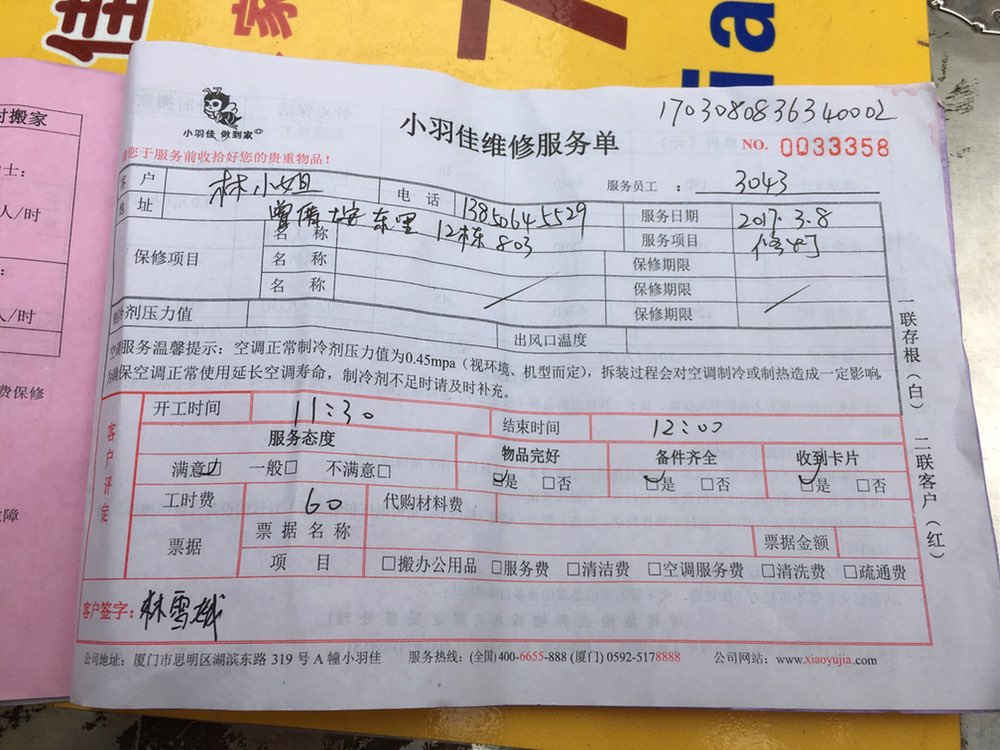 佳
家
ia
时搬家
士:
人/时
:
人/时
费保修
障
小羽佳 做到家
1703080836340002
小羽佳维修服务单
NO. 0033358
请您于服务前收拾好您的贵重物品!
服务员工 : 3043
客 户 林小姐 电 话 13850645529 服务日期 2017.3.8
地 址 东里 12栋 803 服务项目 修灯
保修项目 名 称 保修期限
名 称 保修期限
名 称 保修期限
制冷剂压力值 出风口温度
空调服务温馨提示: 空调正常制冷剂压力值为0.45mpa (视环境、机型而定), 拆装过程会对空调制冷或制热造成一定影响,
为确保空调正常使用延长空调寿命, 制冷剂不足时请及时补充。
客户评定
开工时间 11:30 结束时间 12:00
服务态度 物品完好 备件齐全 收到卡片
满意□ 一般□ 不满意□ □是 □否 □是 □否 □是 □否
工时费 60 代购材料费
票据 票据名称 票据金额
项 目 □搬办公用品 □服务费 □清洁费 □空调服务费 □清洗费 □疏通费
客户签字: 林雪
一联存根(白) 二联客户(红)
公司地址: 厦门市思明区湖滨东路 319 号 A 幢小羽佳 服务热线: (全国) 400-6655-888 (厦门) 0592-5178888 公司网站: www.xiaoyujia.com